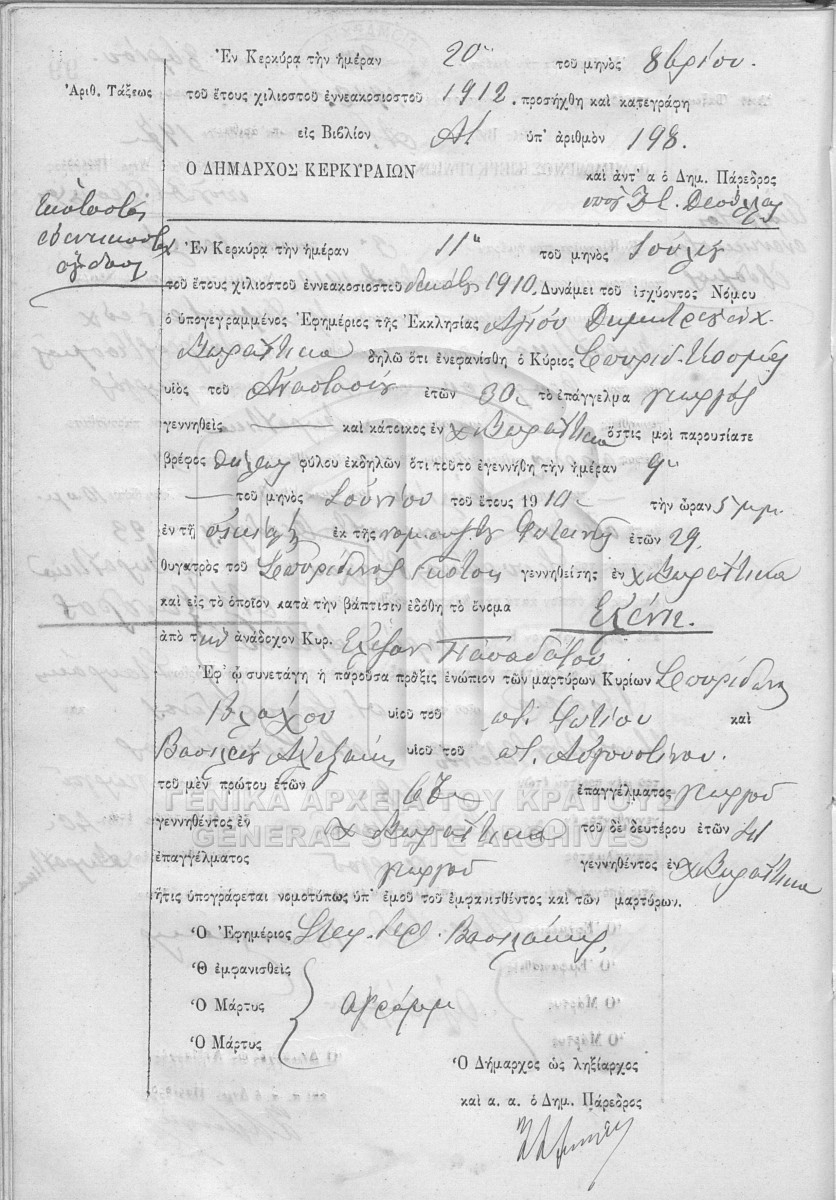 Ἐν Κερκύρᾳ τὴν ἡμέραν 20 τοῦ μηνὸς 8βρίου.
Ἀριθ. Τάξεως
τοῦ ἔτους χιλιοστοῦ ἐννεακοσιοστοῦ 1912. προσήχθη καὶ κατεγράφη
εἰς Βιβλίον ὑπ' ἀριθμὸν 198.
Ο ΔΗΜΑΡΧΟΣ ΚΕΡΚΥΡΑΙΩΝ καὶ ἀντ' α ὁ Δημ. Πάρεδρος
Ἑκατοστὸς
ἐνενηκοστὸς
ὄγδοος
Ἐν Κερκύρᾳ τὴν ἡμέραν 11 τοῦ μηνὸς Ἰουλίου
τοῦ ἔτους χιλιοστοῦ ἐννεακοσιοστοῦ δεκάτου 1910. Δυνάμει τοῦ ἰσχύοντος Νόμου
ὁ ὑπογεγραμμένος Ἐφημέριος τῆς Ἐκκλησίας Ἁγίου Δημητρίου χ.
δηλῶ ὅτι ἐνεφανίσθη ὁ Κύριος Σπυρίδ.
υἱὸς τοῦ Ἀναστασίου ἐτῶν 30 τὸ ἐπάγγελμα γεωργὸς
γεννηθεὶς — καὶ κάτοικος ἐν χ ὅστις μοὶ παρουσίασε
βρέφος θήλεος φύλου ἐκδηλῶν ὅτι τοῦτο ἐγεννήθη τὴν ἡμέραν 9
— τοῦ μηνὸς Ἰουνίου τοῦ ἔτους 1910 τὴν ὥραν 5 μμ.
ἐν τῇ οἰκίᾳ ἐκ τῆς νομίμου συζ. Φωτεινῆς ἐτῶν 29.
θυγατρὸς τοῦ Σπυρίδωνος γεννηθείσης ἐν χ
καὶ εἰς τὸ ὁποῖον κατὰ τὴν βάπτισιν ἐδόθη τὸ ὄνομα Ἑλένη.
ἀπὸ τὴν ἀνάδοχον Κυρ. Παπαδάτου
Ἐφ' ᾧ συνετάγη ἡ παροῦσα πρᾶξις ἐνώπιον τῶν μαρτύρων Κυρίων Σπυρίδωνος
Βλάχου υἱοῦ τοῦ ποτ. Φωτίου καὶ
Βασιλείου υἱοῦ τοῦ ποτ. Αὐγουστίνου.
τοῦ μὲν πρώτου ἐτῶν ἐπαγγέλματος γεωργοῦ
γεννηθέντος ἐν χ τοῦ δὲ δευτέρου ἐτῶν
ἐπαγγέλματος γεωργοῦ γεννηθέντος ἐν χ
ἥτις ὑπογράφεται νομοτύπως ὑπ' ἐμοῦ τοῦ ἐμφανισθέντος καὶ τῶν μαρτύρων.
Ὁ Ἐφημέριος Βασιλάκης
Ὁ ἐμφανισθεὶς
Ὁ Μάρτυς ἀγράμμ
Ὁ Μάρτυς
Ὁ Δήμαρχος ὡς ληξίαρχος
καὶ α. α. ὁ Δημ. Πάρεδρος
ΓΕΝΙΚΑ ΑΡΧΕΙΑ ΤΟΥ ΚΡΑΤΟΥΣ
GENERAL STATE ARCHIVES